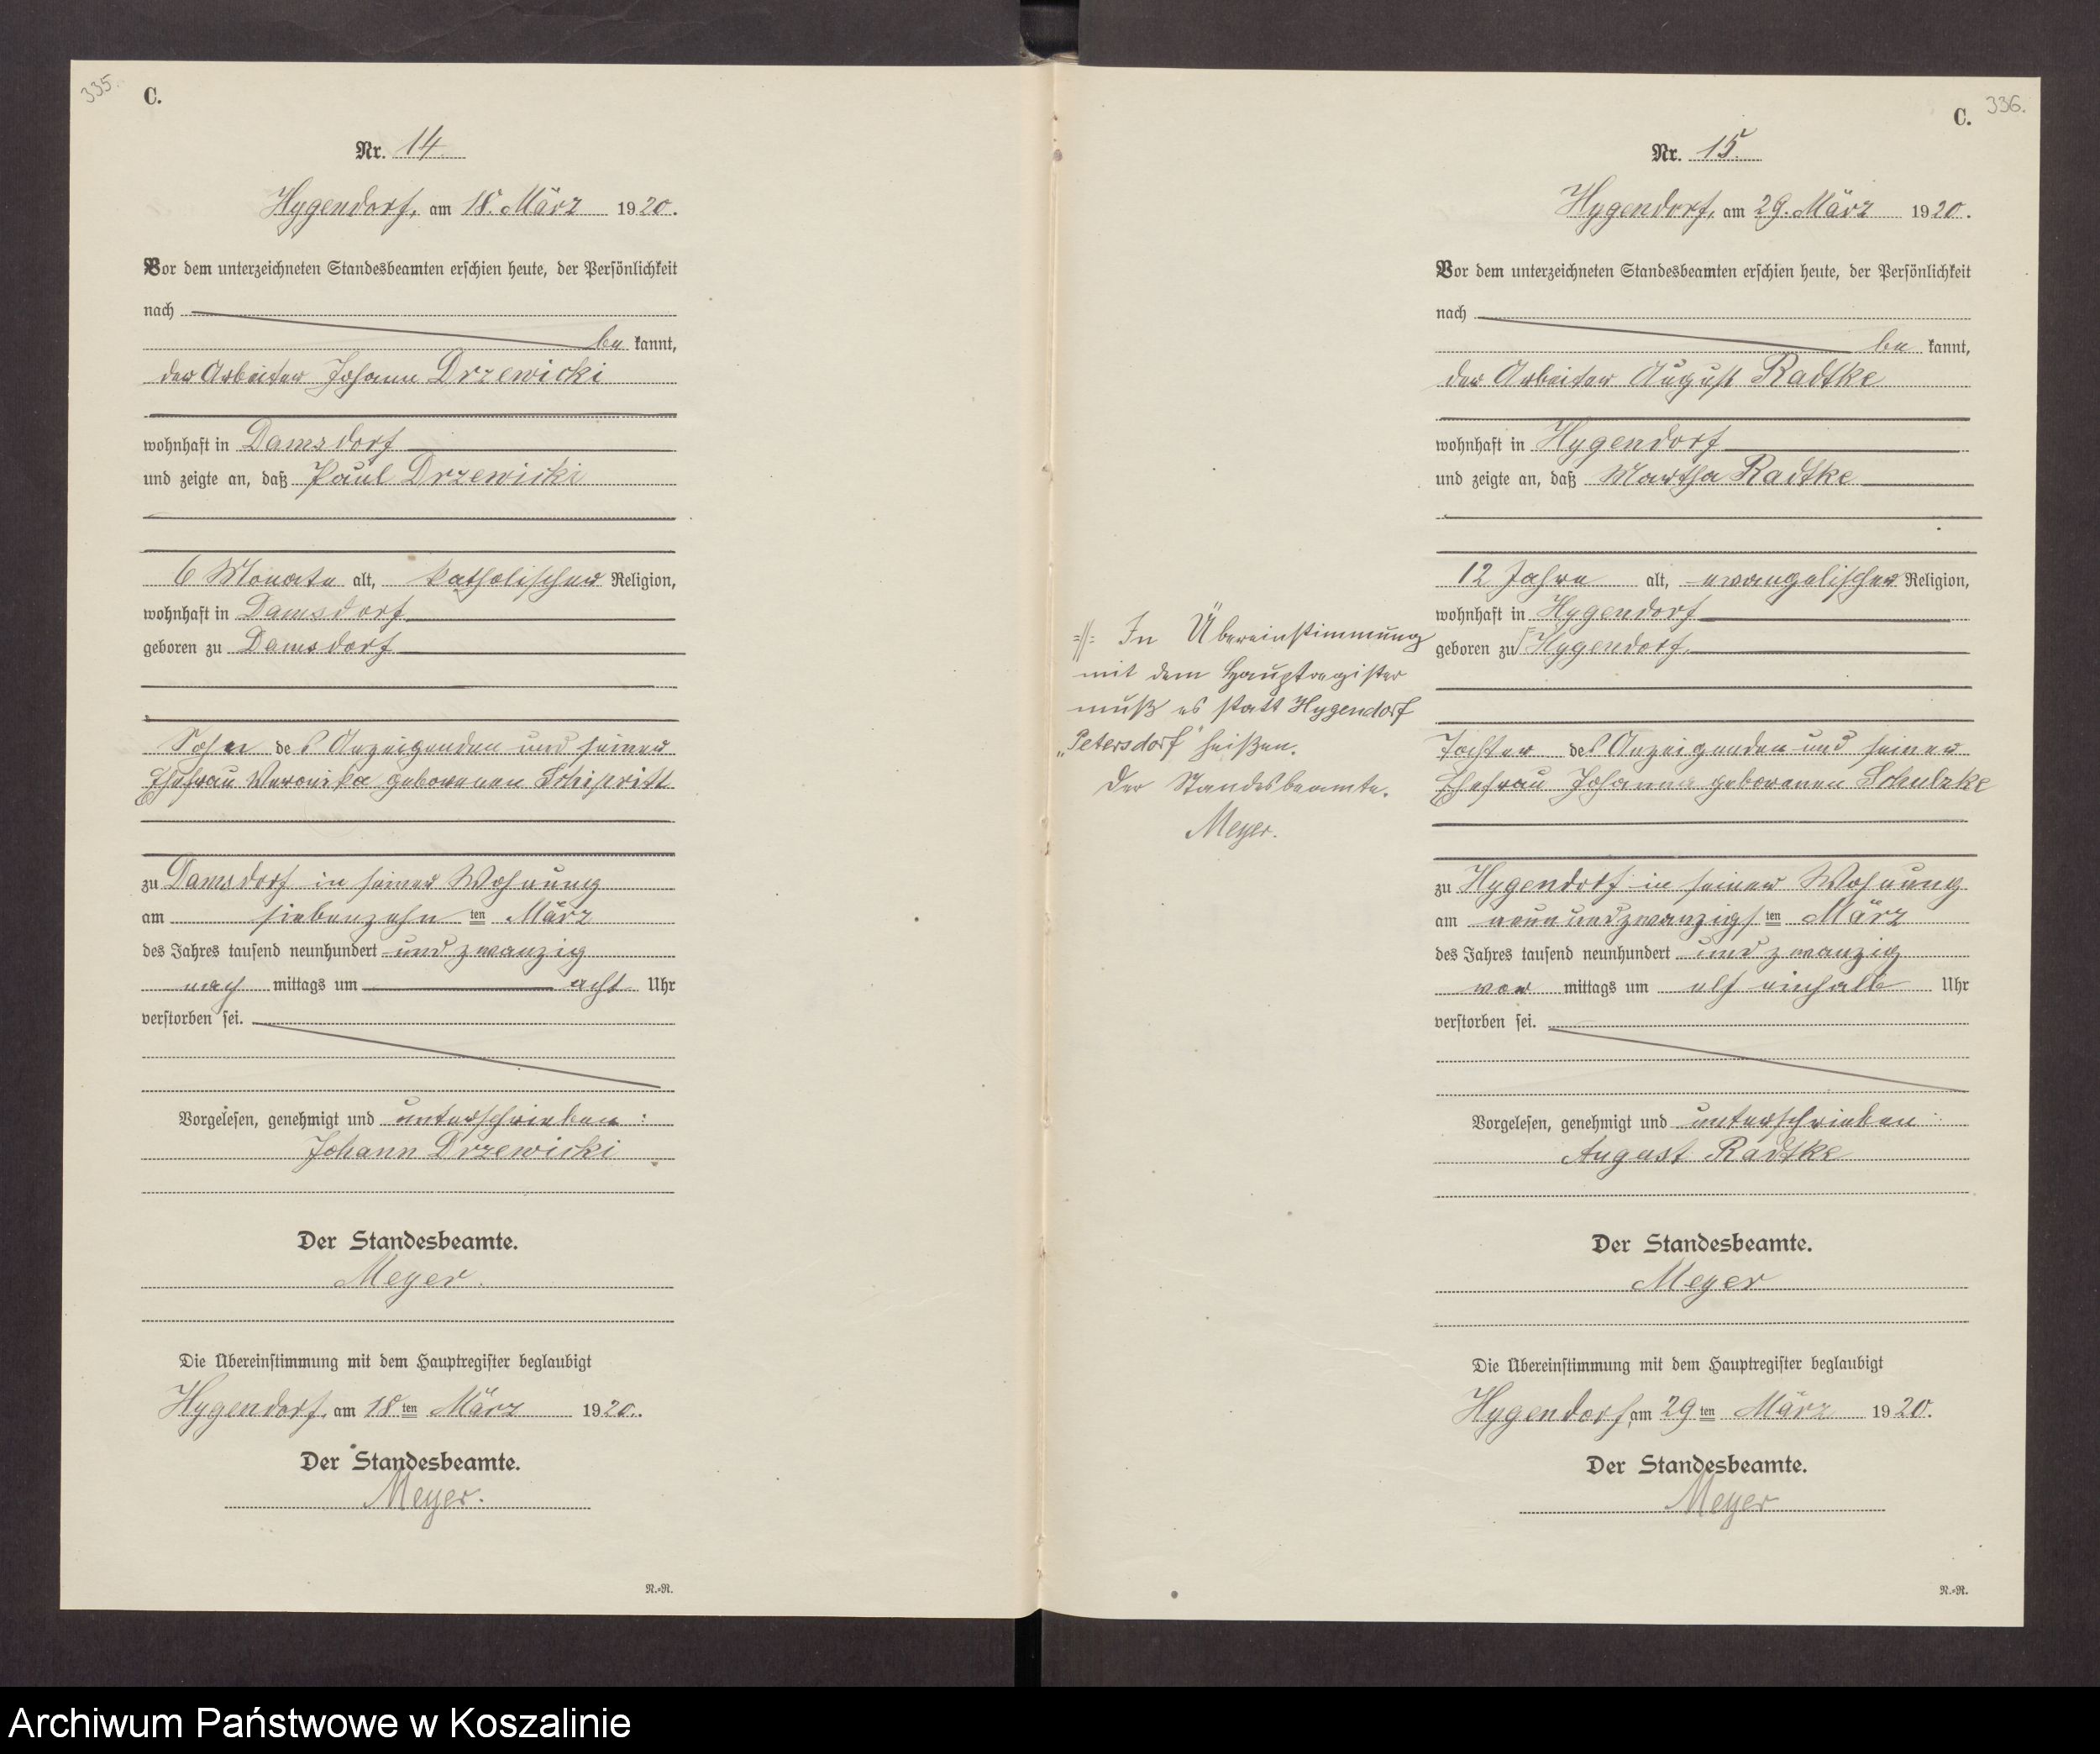 335.
C.
Nr. 14
Hygendorf, am 18. März 1920.
Vor dem unterzeichneten Standesbeamten erschien heute, der Persönlichkeit
nach
be kannt,
der Arbeiter Johann Drzewicki
wohnhaft in Damsdorf
und zeigte an, daß Paul Drzewicki
6 Monate alt, katholischer Religion,
wohnhaft in Damsdorf
geboren zu Damsdorf
Sohn des Anzeigenden und seiner
Ehefrau Veronika geborenen
zu Damsdorf in seiner Wohnung
am siebenzehn ten März
des Jahres tausend neunhundert und zwanzig
nach mittags um acht Uhr
verstorben sei.
Vorgelesen, genehmigt und unterschrieben:
Johann Drzewicki
Der Standesbeamte.
Meyer.
Die Übereinstimmung mit dem Hauptregister beglaubigt
Hygendorf, am 18 ten März 1920.
Der Standesbeamte.
Meyer.
N.=R.
336.
C.
Nr. 15.
Hygendorf, am 29. März 1920.
Vor dem unterzeichneten Standesbeamten erschien heute, der Persönlichkeit
nach
be kannt,
der Arbeiter August Radtke
wohnhaft in Hygendorf
und zeigte an, daß Martha Radtke
12 Jahre alt, evangelischer Religion,
wohnhaft in Hygendorf
geboren zu Hygendorf
Tochter des Anzeigenden und seiner
Ehefrau Johanna geborenen Schulzke
zu Hygendorf in seiner Wohnung
am neunundzwanzigs ten März
des Jahres tausend neunhundert und zwanzig
vor mittags um elf einhalb Uhr
verstorben sei.
Vorgelesen, genehmigt und unterschrieben:
August Radtke
Der Standesbeamte.
Meyer
Die Übereinstimmung mit dem Hauptregister beglaubigt
Hygendorf, am 29 ten März 1920.
Der Standesbeamte.
Meyer
N.=R.
In Übereinstimmung
mit dem Hauptregister
muß es statt Hygendorf
„Petersdorf" heißen.
Der Standesbeamte.
Meyer.
Archiwum Państwowe w Koszalinie